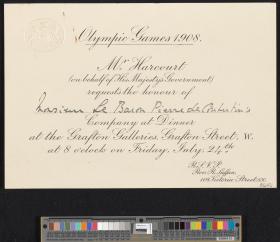 Olympic Games 1908.
Mr. Harcourt
(on behalf of His Majesty's Government)
requests the honour of
Monsieur Le Baron Pierre de Coubertin's
Company at Dinner
at the Grafton Galleries, Grafton Street, W.
at 8 o'clock on Friday, July 24th
R.S.V.P.